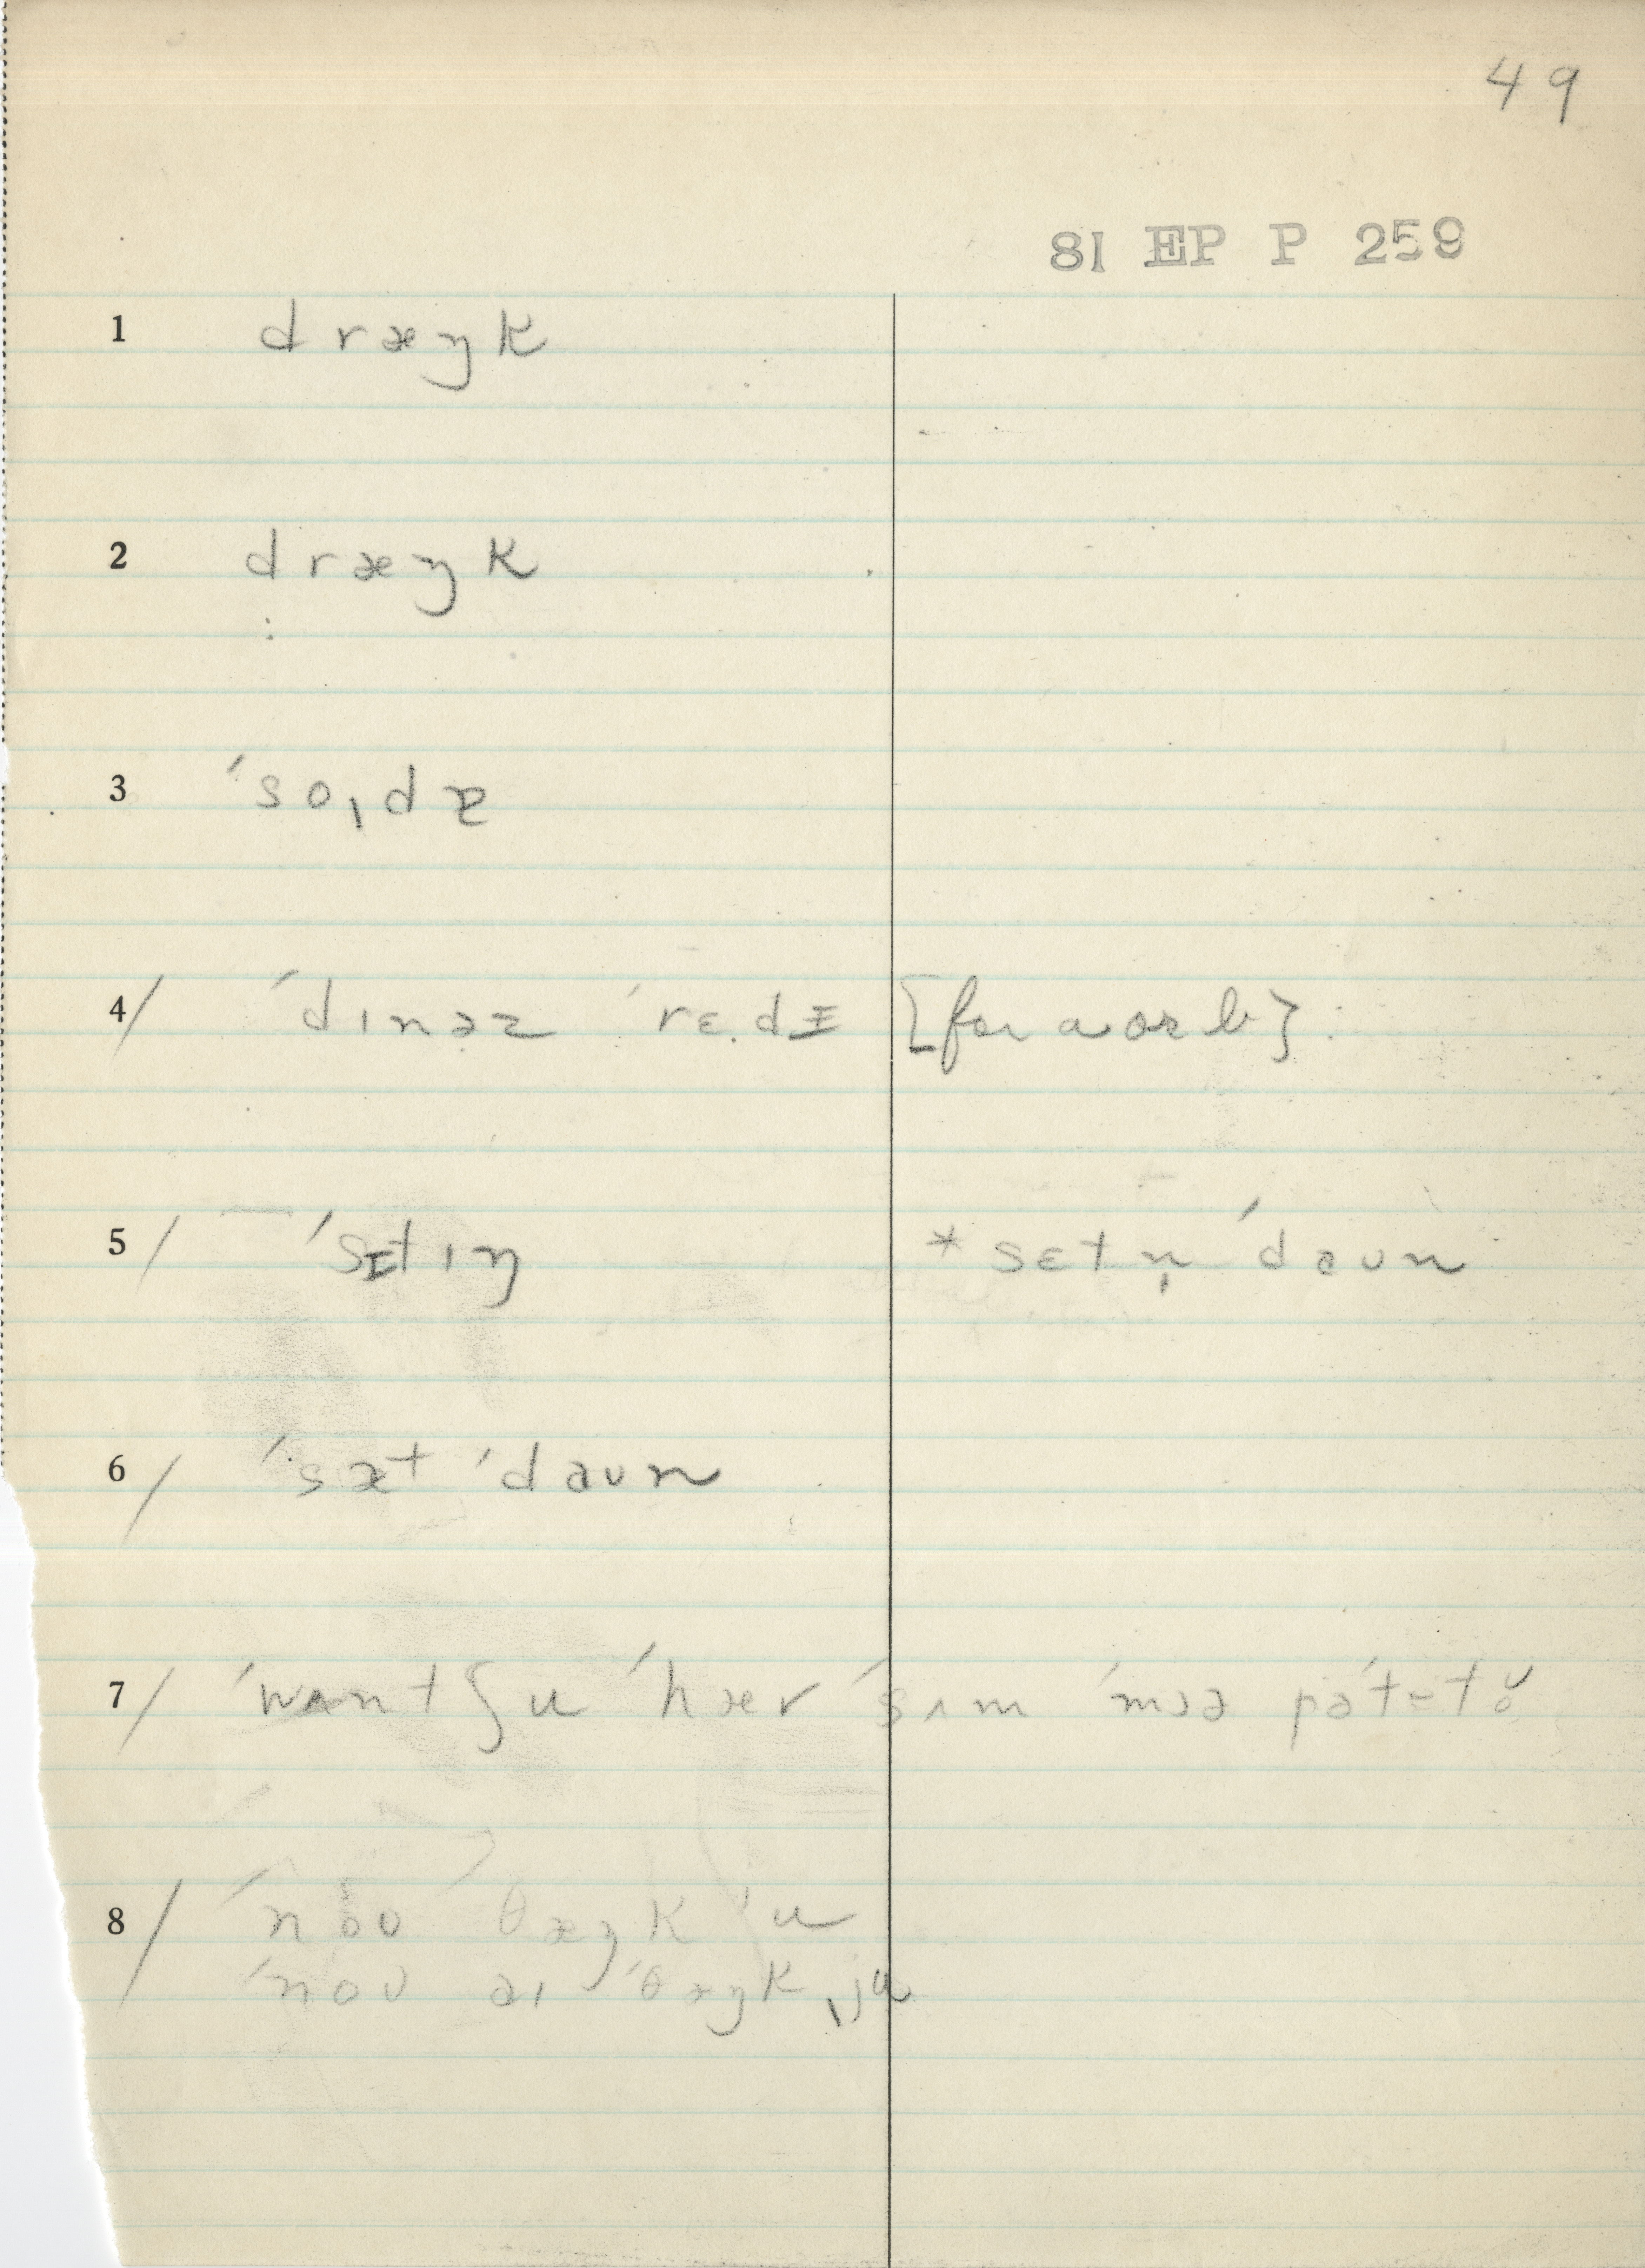 49
81 EP P 259
1 dræŋk
2 dræŋk
3 ˈsoˌdɐ
4/ ˈdɪnəz ˈrɛ.dɪ [for a or b]
5/ ˈsɪtɪŋ *sɛtn̩ ˈdaun
6/ ˈsæt ˈdaun
7/ ˈwʌntʃu ˈhær ˈsʌm ˈmɔə
8/ ˈnou θæŋk ˈu
ˈnoʊ aɪ ˈθæŋkˌju